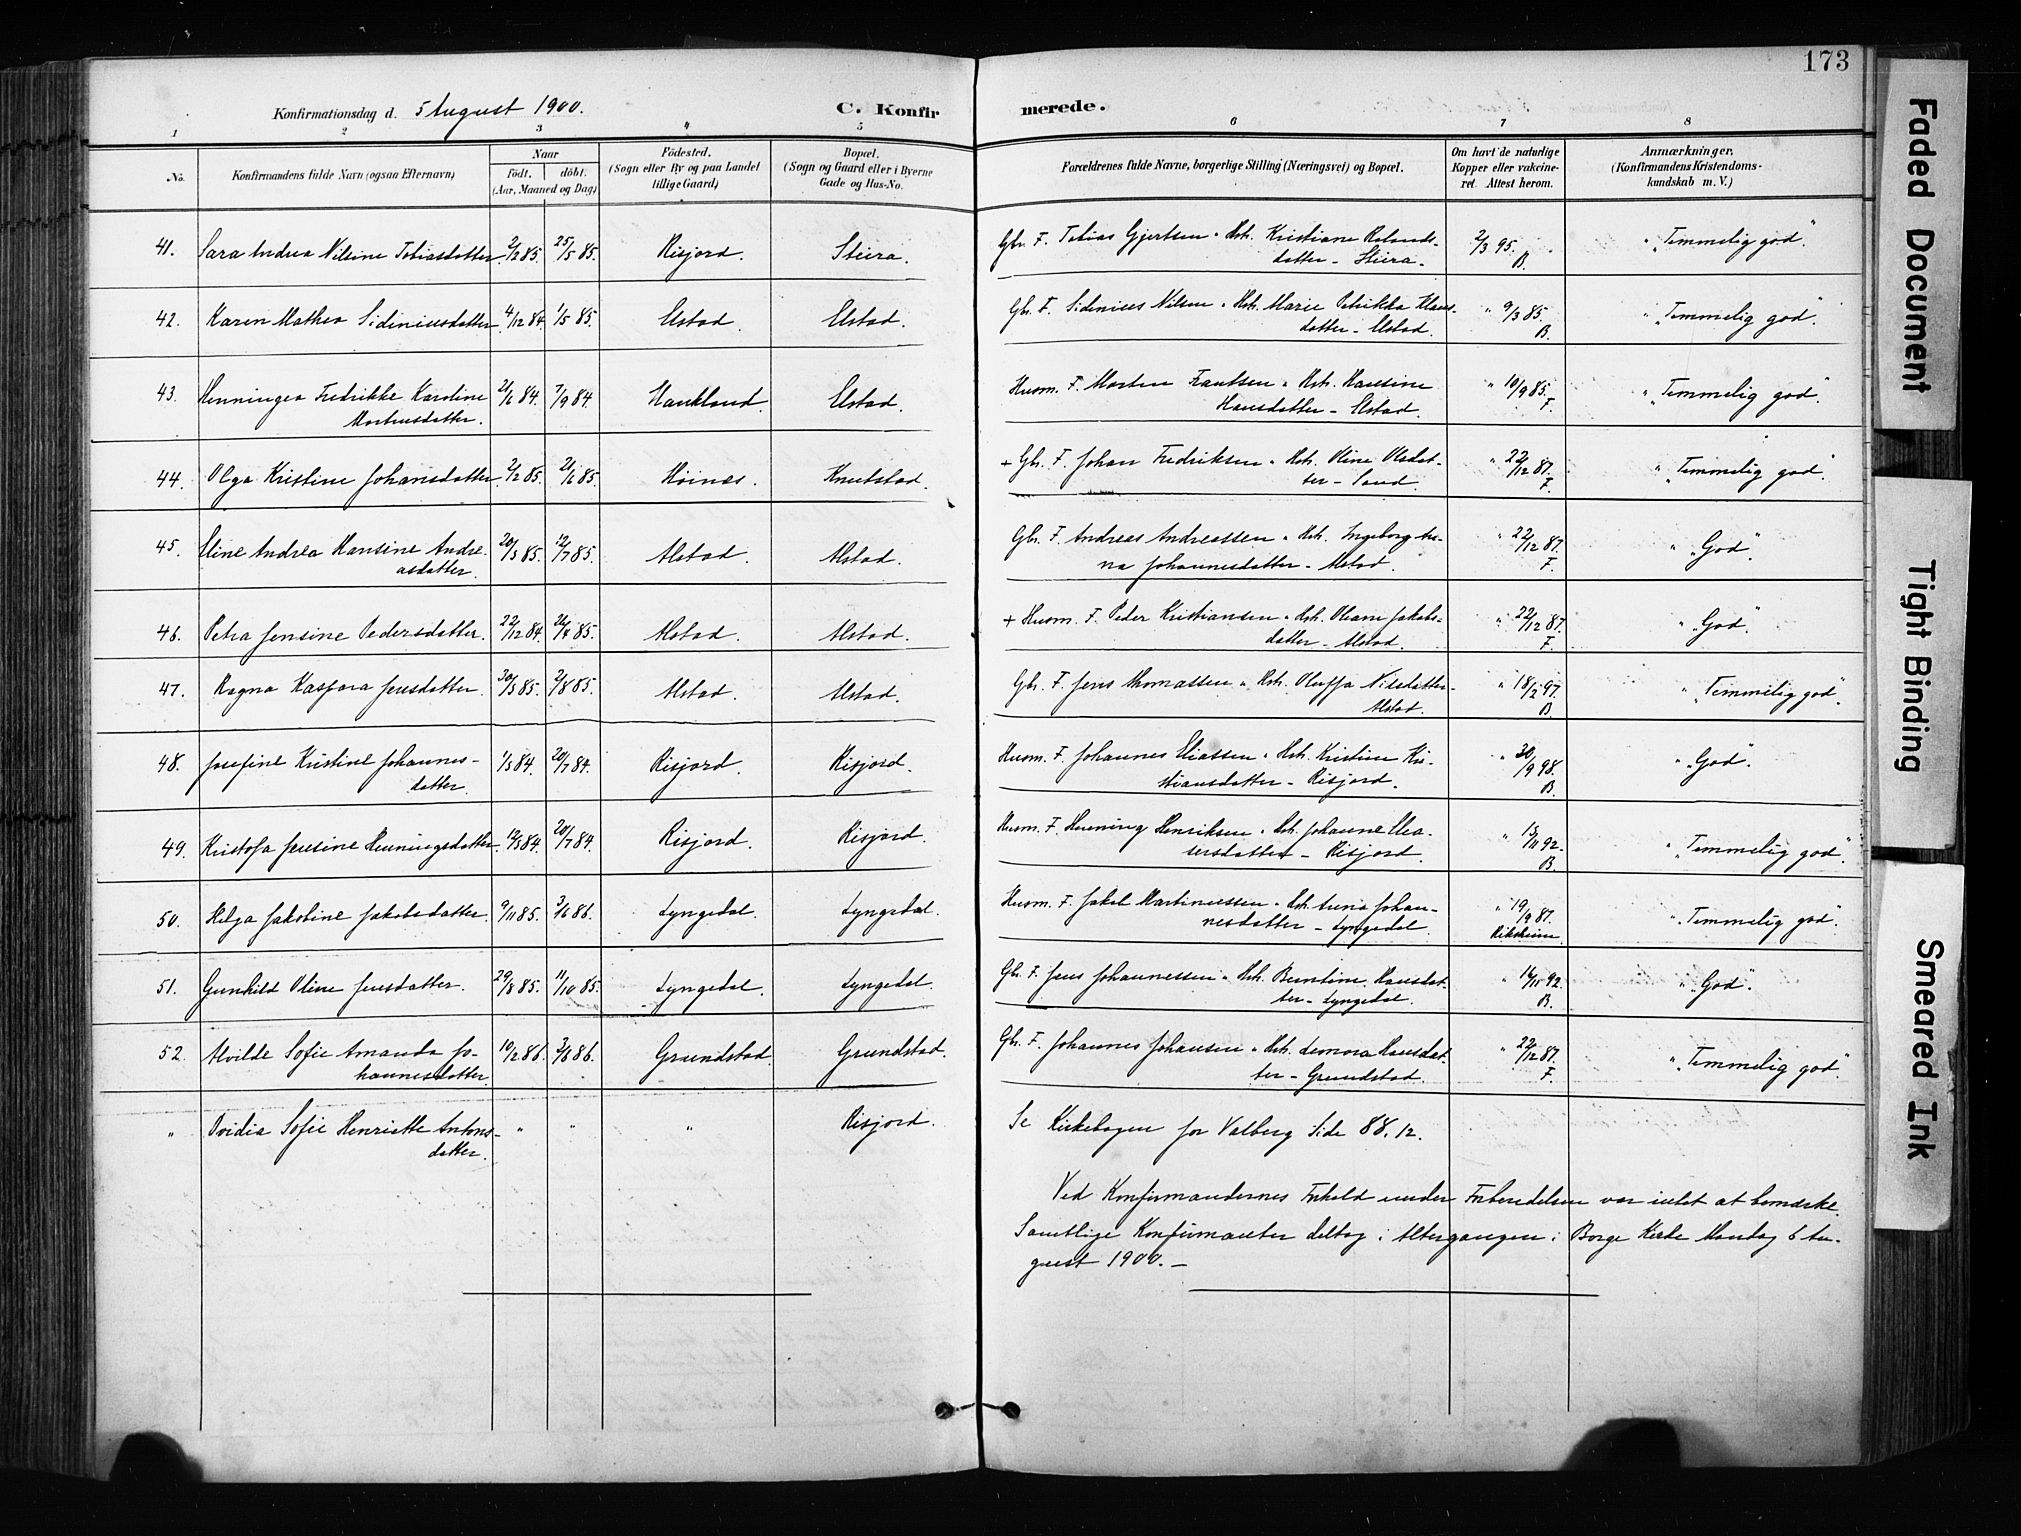 173
Konfirmationsdag d. 5 August 1900.
C. Konfirmerede.
1 2 3 4 5 6 7 8
No.
Konfirmandens fulde Navn (ogsaa Efternavn)
Naar
födt. döbt.
(Aar, Maaned og Dag)
Födested.
(Sogn eller By og paa Landet
tillige Gaard)
Bopæl.
(Sogn og Gaard eller i Byerne
Gade og Hus-No.
Forældrenes fulde Navne, borgerlige Stilling (Næringsvei) og Bopæl.
Om havt de naturlige
Kopper eller vakcine-
ret. Attest herom.
Anmærkninger.
(Konfirmandens Kristendoms-
kundskab m. V.)
41. Sara Andrea Nilsine Tobiasdatter 2/2 85. 25/5 85. Risjord. Steira. Gbr. F. Tobias Gjertsen " Hst. Kristiane Rolands-
datter - Steira. 2/3 95. B. " "Temmelig god".
42. Karen Mathea Sideniusdatter 4/12 84. 1/5 85. Elstad. Elstad. Gbr. F. Sidenius Nilsen " Hst. Marie Petrikka Klaus-
datter - Elstad. " 9/3 85. B. " "Temmelig god".
43. Henningea Fredrikke Karoline
Mortensdatter. 21/6 84. 7/9 84. Haukland. Elstad. Husm. F. Morten Frantsen " Hst. Hansine
Hansdatter - Elstad. " 10/9 85. F. " "Temmelig god".
44. Olga Kristine Johansdatter 2/2 85. 21/6 85. Höines. Knutstad. + Gbr. F. Johan Fredriksen " Hst. Oline Olsdat-
ter - Sand. " 22/12 87. F. " "Temmelig god".
45. Eline Andrea Hansine Andre-
asdatter. 20/3 85. 12/7 85. Alstad. Alstad. Gbr. F. Andreas Andreassen " Hst. Ingeborg An-
na Johannesdatter - Alstad. " 22/12 87. F. " "God".
46. Petra Jensine Pedersdatter. 22/12 84. Alstad. Alstad. + Husm. F. Peder Kristiansen " Hst. Oleane Jakobs-
datter - Alstad. " 22/12 87. F. " "God".
47. Ragna Kaspara Jensdatter. 30/5 85. 2/8 85. Alstad. Alstad. Gbr. F. Jens Thomassen " Hst. Oluffa Nilsdatter-
Alstad. " 18/2 97. B. " "Temmelig god".
48. Josefine Kristine Johannes-
datter. 1/5 84. 20/7 84. Risjord. Risjord. Husm. F. Johannes Eliassen " Hst. Kristine Kri-
stiansdatter - Risjord. " 30/9 98. B. " "God".
49. Kristofa Jensine Henningsdatter. 12/5 84. 20/7 84. Risjord. Risjord. Husm. F. Henning Henriksen " Hst. Johanne Elia-
sersdatter - Risjord. " 15/11 92. B. " "Temmelig god".
50. Helga Jakobine Jakobsdatter. 9/11 85. 3/6 86. Lyngedal. Lyngedal. Husm. F. Jakob Martinussen " Hst. Anna Johan-
nesdatter - Lyngedal. " 19/9 87. " "Temmelig god".
51. Gunhild Oline Jensdatter. 29/8 85. 11/10 85. Lyngedal. Lyngedal. Gbr. F. Jens Johannessen " Hst. Berntine Hansdat-
ter - Lyngedal. " 14/11 92. B. " "God".
52. Alvilde Sofie Amanda Jo-
hannesdatter. 19/2 86. Grundstad. Grundstad. Gbr. F. Johannes Johansen " Hst. Leonora Hansdat-
ter - Grundstad. " 22/12 87. F. " "Temmelig god".
" Ovidia Sofie Henriette Antons-
datter. " " " Risjord. Se Kirkebogen for Valberg Side 88. 12.
Ved Konfirmandernes Forhold under Forberedelsen var intet at bemærke.
Samtlige Konfirmanter deltog i Altergangen i Borge Kirke Mandag 6 Au-
gust 1900. -
Faded Document
Tight Binding
Smeared Ink